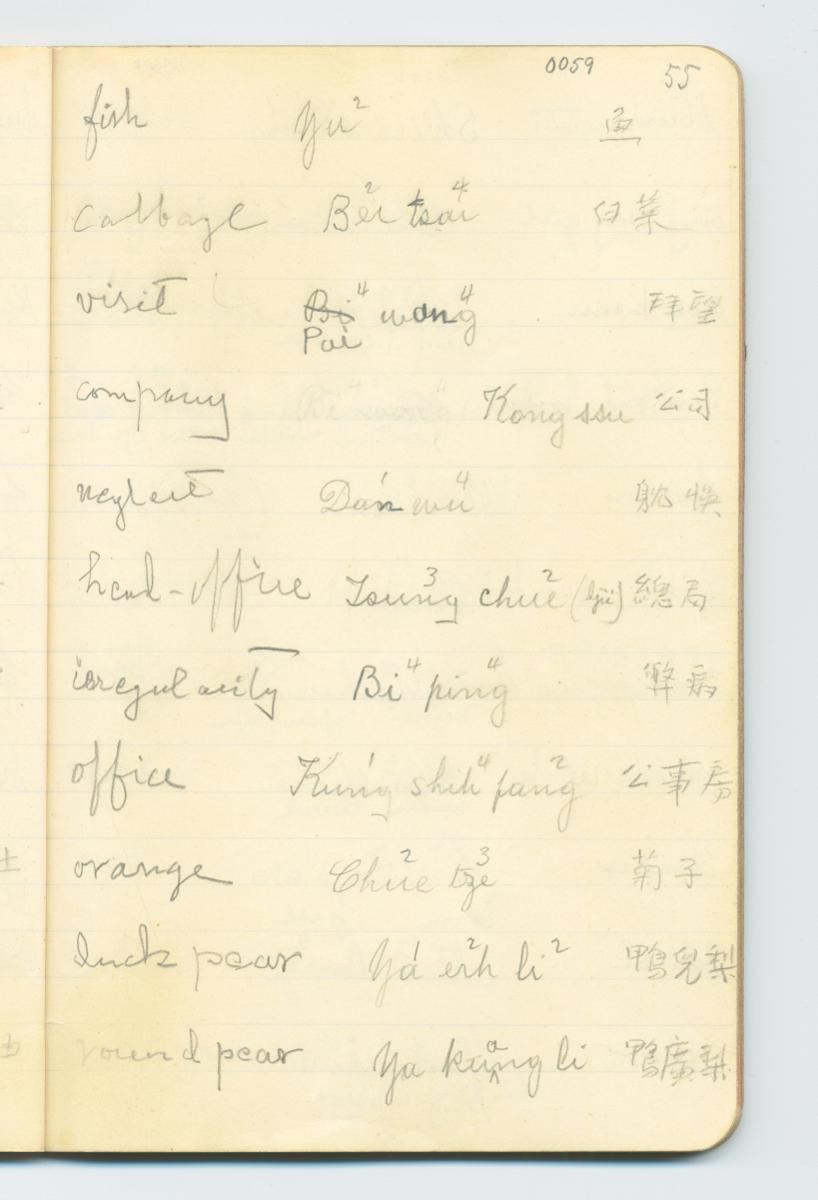 0059 55
fish Yu² 魚
cabbage Bei² tsai⁴ 白菜
visit Bi⁴ wang⁴ 拜望
Pai
company Kong ssu 公司
neglect Dan¹ wu⁴ 躭悞
head-office Tsung³ chue² 總局
irregularity Bi⁴ ping⁴ 弊病
office Kung¹ shih⁴ fang² 公事房
orange Chue² tze³ 菊子
duck pear Ya¹ erh² li² 鴨兒梨
round pear Ya kuang li 鴨廣梨